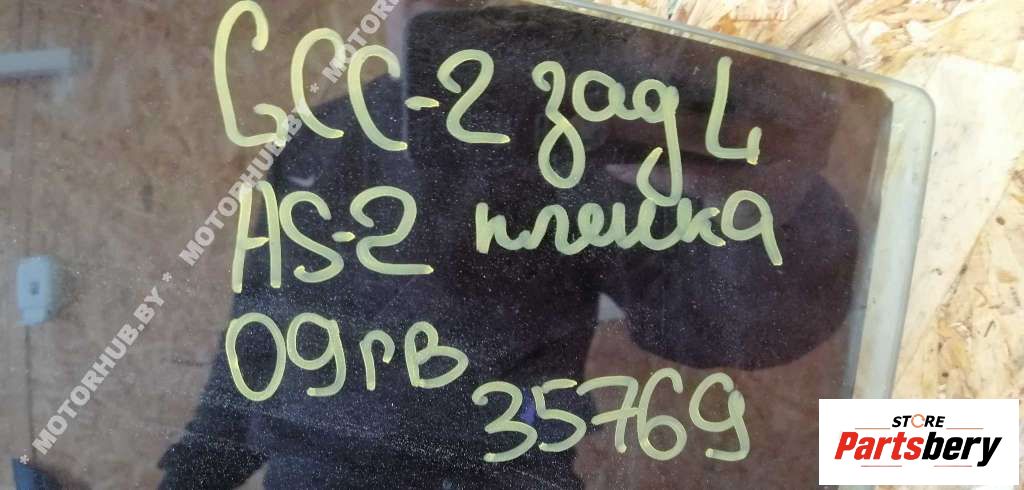 GCC-2 зад L
AS-2 пленка
09гв
35769
* MOTORHUB.BY * MOTORHUB.BY * MOTORHUB.BY *
STORE
Partsbery